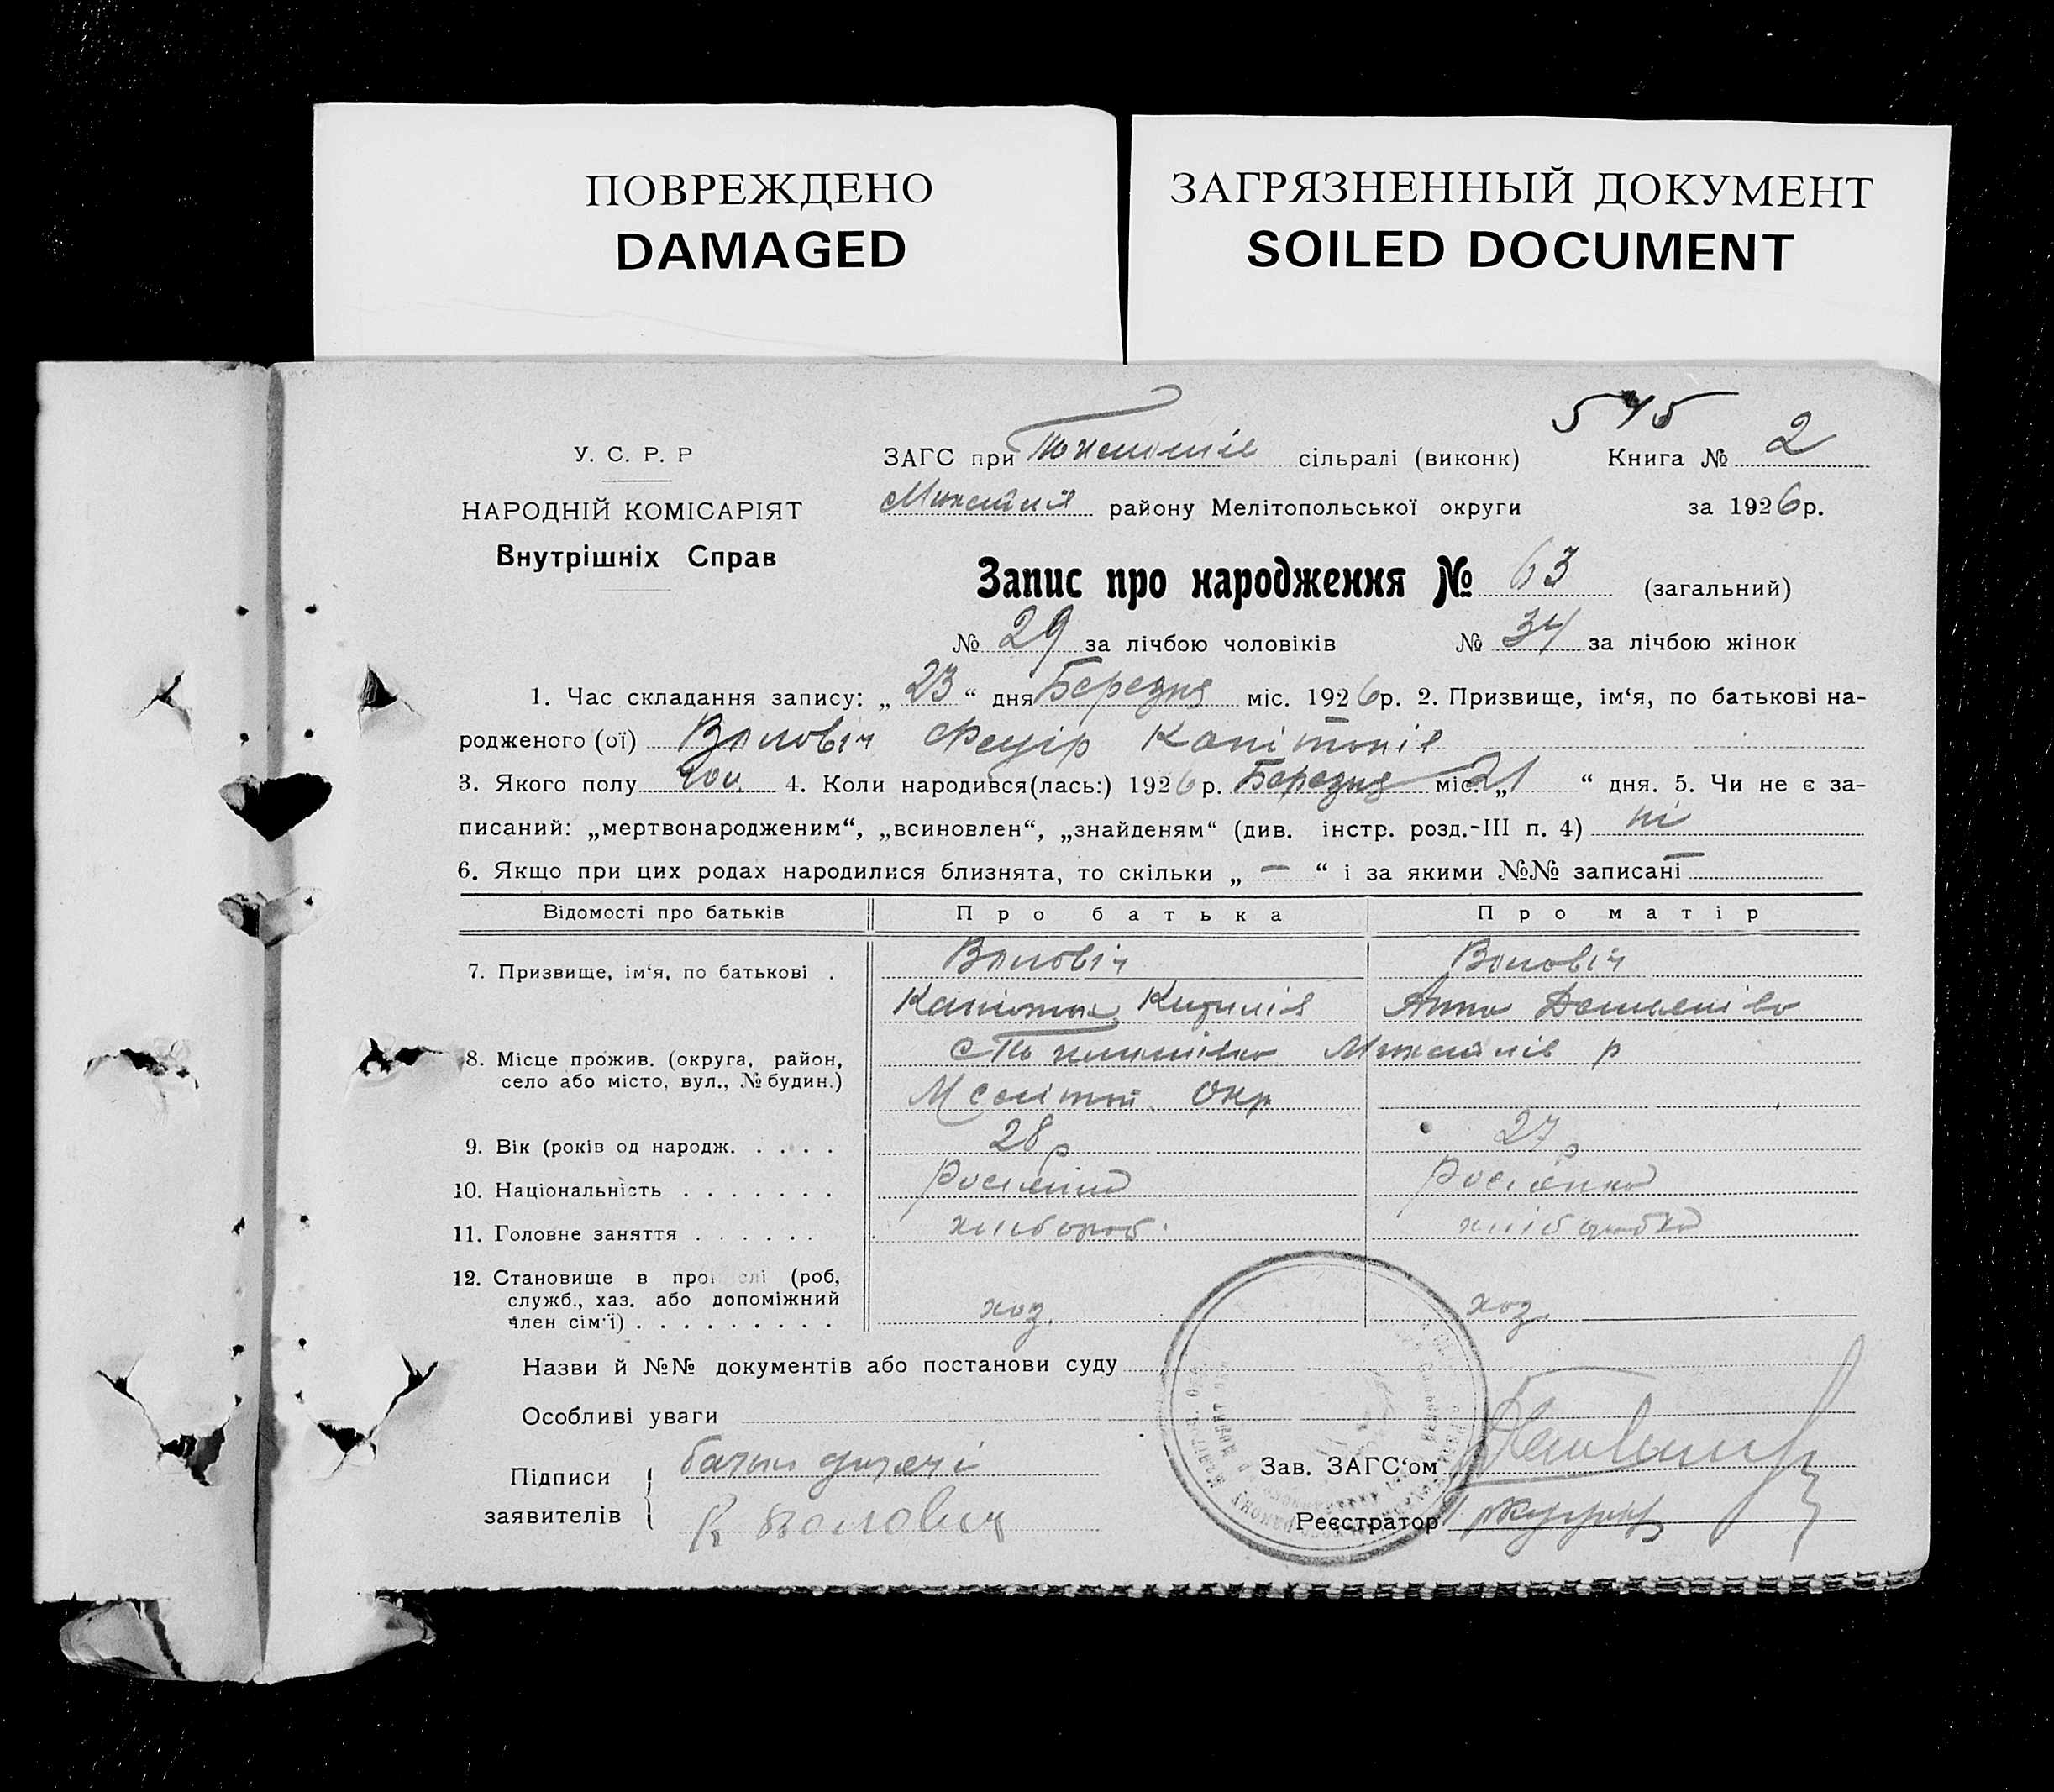 ПОВРЕЖДЕНО
DAMAGED
ЗАГРЯЗНЕННЫЙ ДОКУМЕНТ
SOILED DOCUMENT
545
У. С. Р. Р
НАРОДНІЙ КОМІСАРІЯТ
Внутрішніх Справ
ЗАГС при сільраді (виконк) Книга № 2
району Мелітопольської округи за 1926р.
Запис про народження № 63 (загальний)
№ 29 за лічбою чоловіків № 34 за лічбою жінок
1. Час складання запису: „ 23 “ дня Березня міс. 1926р. 2. Призвище, ім‘я, по батькові на-
родженого (ої) Волович Капітонів
3. Якого полу чол. 4. Коли народився(лась:) 1926р. Березня міс. „21 “ дня. 5. Чи не є за-
писаний: „мертвонародженим“, „всиновлен“, „знайденям“ (див. інстр. розд.-III п. 4) ні
6. Якщо при цих родах народилися близнята, то скільки „ — “ і за якими №№ записані —
Відомості про батьків Про батька Про матір
7. Призвище, ім‘я, по батькові . Воловіч Воловіч
Капітон Анна
8. Місце прожив. (округа, район,
село або місто, вул., № будин.) р
Мелітоп. Окр
9. Вік (років од народж. . . . . 28р 27р
10. Національність . . . . . . . Росіянин Росіянка
11. Головне заняття . . . . . . хлібороб. хліборобка
12. Становище в (роб,
служб., хаз. або допоміжний
член сім‘ї) . . . . . . . . . хоз. хоз.
Назви й №№ документів або постанови суду
Особливі уваги
Підписи батько дитяті
заявителів К Волович
Зав. ЗАГС‘ом
Реєстратор